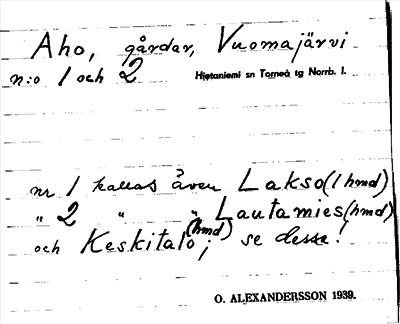 Aho, gårdar, Vuomajärvi
n:o 1 och 2 Hietaniemi sn Torneå tg Norrb. l.
nr 1 kallas även Lakso (1 hmd)
" 2 " " Lautamies (hmd)
och Keskitalo (hmd); se dessa!
O. ALEXANDERSSON 1939.